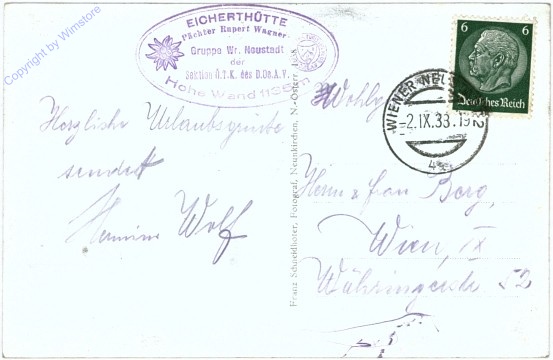 Copyright by Wimstore
EICHERTHÜTTE
Pächter Rupert Wagner
Gruppe Wr. Neustadt
der
Sektion Ö.T.K. des D.Oe.A.V.
Hohe Wand
Herzliche Urlaubsgrüße
sendet
Hermine Wolf
Franz Schmeidlhofer, Fotograf, Neunkirchen, N.-Österr.
6 6
Deutsches Reich
WIENER NEU
-2.IX.33.19
Wohlg
Herrn & Frau Berg,
Wien, IX
Währingerstr 52